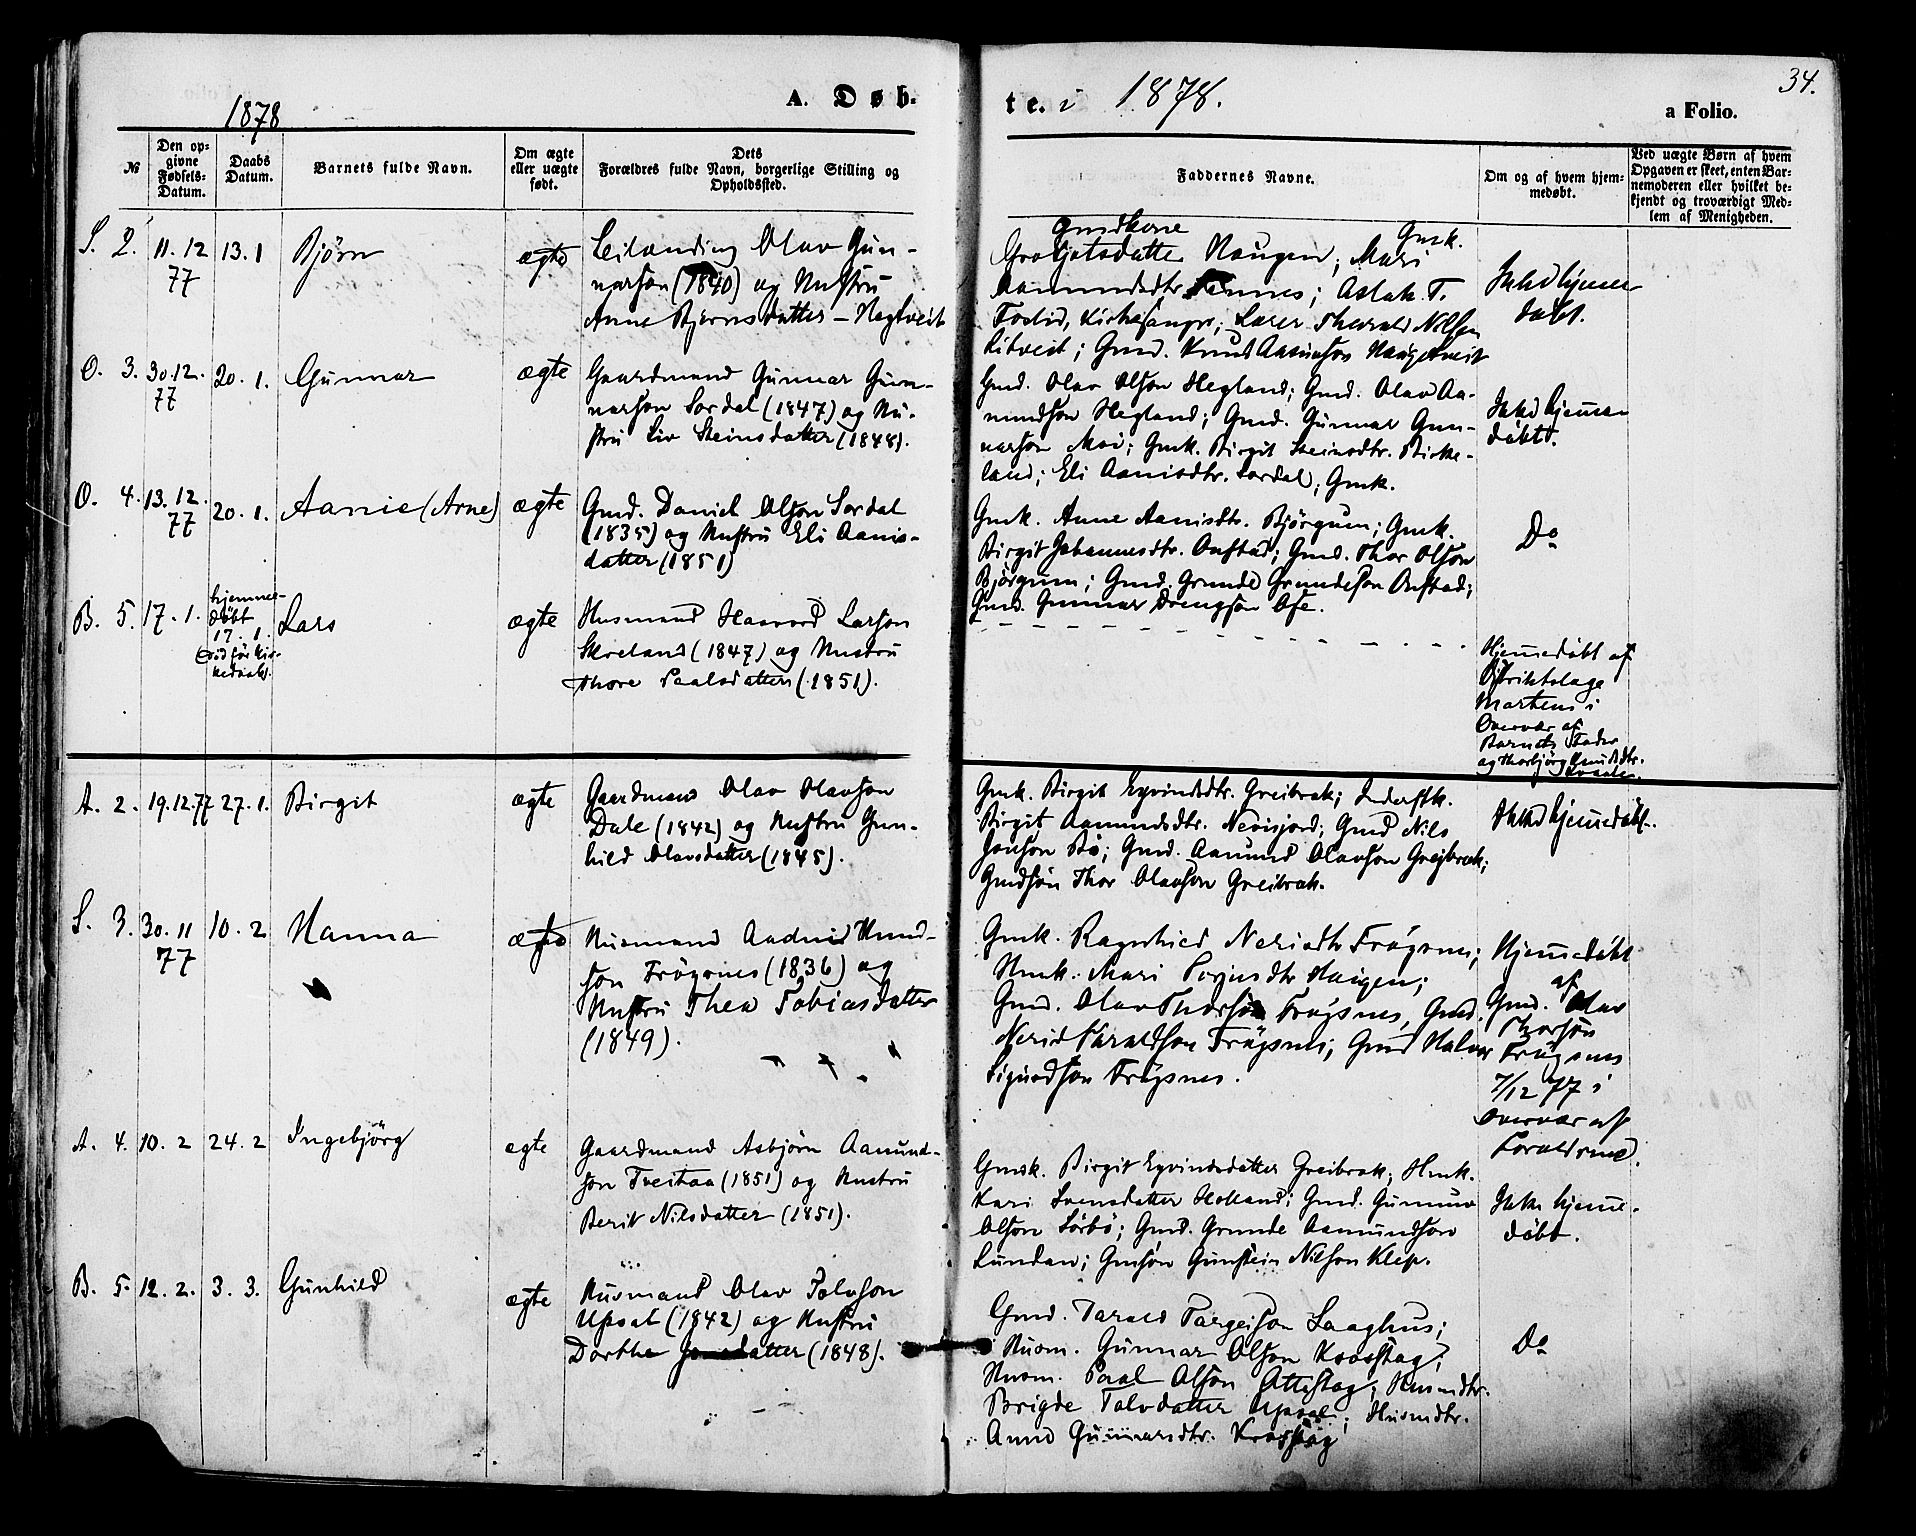 34.
1878
A. Døb-
te. i 1878.
a Folio.
№
Den op-
givne
Fødsels-
Datum.
Daabs
Datum.
Barnets fulde Navn.
Om ægte
eller uægte
født.
Dets
Forældres fulde Navn, borgerlige Stilling og
Opholdssted.
Faddernes Navne.
Om og af hvem hjem-
medøbt.
Ved uægte Børn af hvem
Opgaven er skeet, enten Bar-
nemoderen eller hvilket be-
kjendt og troværdigt Med-
lem af Menigheden.
S. 2. 11. 12
77
13. 1
Bjørn
ægte
Leilænding Olav Gun-
narson (1840) og Hustru
Anne Bjørnsdatter –
Gmdkone Gmk.
Haugen; Mari
Aamundsdtr. Aslak T.
Kirkesanger; Lærer Nilsen
Gmd. Knud
Ikke hjemme
døbt.
O. 3. 30. 12.
77
20. 1.
Gunnar
ægte
Gaardmand Gunnar Gun-
narson Sordal (1847) og Hu-
stru Liv Steinsdatter (1848).
Gmd. Olav Olson Hegland; Gmd. Olav Aa-
mundson Hegland; Gmd. Gunnar Gun-
narson Moi; Gmk. Birgit Steinsdtr. Birke-
land; Eli Aanisdtr. Sordal, Gmk.
Ikke hjemme
døbt.
O. 4. 13. 12.
77
20. 1.
Aanie (Arne)
ægte
Gmd. Daniel Olson Sordal
(1835) og Hustru Eli Aanis-
datter (1851)
Gmk. Anne Aanisdtr. Bjørgum; Gmk.
Birgit Johannesdtr. Austad; Gmd. Thor Olson
Bjørgum; Gmd. Grunde Grundeson Austad;
Gmd. Gunnar Drengson Ose.
Do
B. 5. 17. 1.
hjemme-
døbt
17. 1.
Lars
ægte
Husmand Haavord Larson
Skreland (1847) og Hustru
Thore Paalsdatter (1851).
Hjemmedøbt af
Distriktslæge
Martens i
Overvær af
Barnets Fader
og Thorbjørg
A. 2. 19. 12. 77 27. 1.
Birgit
ægte
Gaardmand Olav Olavson
Dale (1842) og Hustru Gun-
hild Olavsdatter (1845).
Gmk. Birgit Eyvindsdtr. Greibrok; Inderstk.
Birgit Aamundsdtr. Nevisjord; Gmd Nils
Jonson Bø; Gmd. Aamund Olavson Greibrok;
Gmdsøn Thor Olavson Greibrok.
Ikke hjemmedøbt.
S. 3. 30. 11
77
10. 2
Hanna
ægte
Husmand Aadnie Knud-
son Frøysnes (1836) og
Hustru Thea Tobiasdatter
(1849).
Gmk. Ragnhild Neridtr Frøysnes;
Hmk. Mari Haugen;
Gmd. Olav Thorson Frøysnes, Gmd.
Nerid Haraldson Frøysnes; Gmd Halvor
Sigurdson Frøysnes.
Hjemmedøbt
af
Gmd. Olav
Thorson
Frøysnes
7/12 77 i
Overvær af
Forældrene.
A. 4. 10. 2 24. 2
Ingebjörg
ægte
Gaardmand Asbjørn Aamund-
son Tveitaa (1851) og Hustru
Berit Nilsdatter (1851).
Gmk. Birgit Eyvindsdatter Greibrok; Hmk.
Kari Svensdatter Holland; Gmd. Gunnar
Olson Sörbø; Gmd. Grunde Aamundson
Lundan; Gmsøn Gunstein Nilson Klep.
Ikke hjemme-
døbt.
B. 5. 12. 2. 3. 3.
Gunhild
ægte
Husmand Olav Talvson
Upsal (1842) og Hustru
Dorthe (1848).
Gmd. Tarald Targeison Langhus;
Husm. Gunnar Olson
Husm. Paal Olson Husmdtr.
Brigde Talvdatter Upsal; Husmdtr.
Anne Gunnarsdtr.
Do